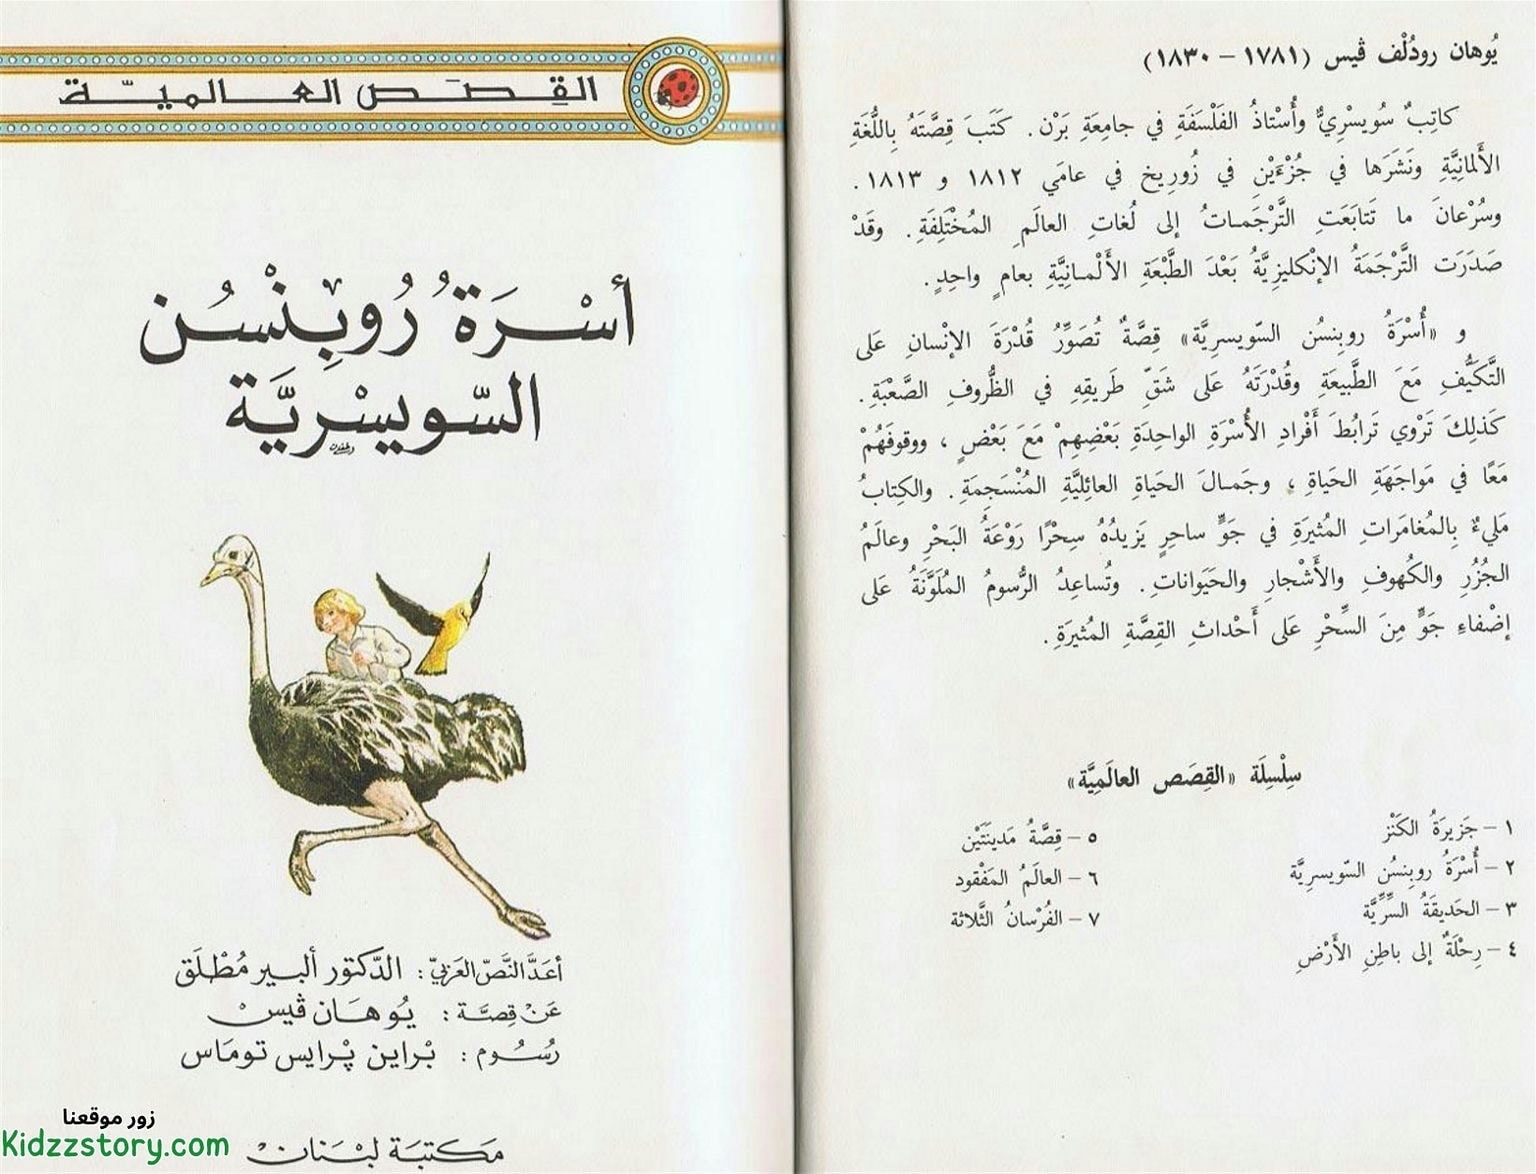 يُوهان رودُلْف ڤيس (١٧٨١ – ١٨٣٠)
كاتِبٌ سُويسْرِيٌّ وأُسْتاذُ الفَلْسَفَةِ في جامِعَةِ بَرْن. كَتَبَ قِصَّتَهُ بِاللُّغَةِ
الأَلمانِيَّةِ ونَشَرَها في جُزْءَيْنِ في زُورِيخ في عامَي ١٨١٢ و ١٨١٣.
وسُرْعانَ ما تَتابَعَتِ التَّرْجَمـاتُ إلى لُغاتِ العالَمِ المُخْتَلِفَةِ. وقَدْ
صَدَرَت التَّرْجَمَةُ الإنْكليزِيَّةُ بَعْدَ الطَّبْعَةِ الأَلْمـانِيَّةِ بعامٍ واحِدٍ.
و «أُسْرَةُ روبِنسُن السّويسرِيَّة» قِصَّةٌ تُصَوِّرُ قُدْرَةَ الإنْسانِ عَلى
التَّكَيُّفِ مَعَ الطَّبيعَةِ وقُدْرَتَهُ عَلى شَقِّ طَريقِهِ في الظُّروفِ الصَّعْبَةِ.
كَذلِكَ تَرْوي تَرابُطَ أَفْرادِ الأُسْرَةِ الواحِدَةِ بَعْضِهِمْ مَعَ بَعْضٍ ، ووقوفَهُمْ
مَعًا في مُواجَهَةِ الحَياةِ ، وجَمـالَ الحَياةِ العائِليَّةِ المُنْسَجِمَةِ. والكِتابُ
مَليءٌ بِالمُغامَراتِ المُثيرَةِ في جَوٍّ ساحِرٍ يَزيدُهُ سِحْرًا رَوْعَةُ البَحْرِ وعالَمُ
الجُزُرِ والكُهوفِ والأَشْجارِ والحَيَواناتِ. وتُساعِدُ الرُّسومُ المُلَوَّنَةُ عَلى
إضْفاءِ جَوٍّ مِنَ السِّحْرِ عَلى أَحْداثِ القِصَّةِ المُثيرَةِ.
سِلْسِلَة «القِصَص العالَمِيَّة»
١ – جَزيرَةُ الكَنْز
٢ – أُسْرَةُ روبِنسُن السّويسرِيَّة
٣ – الحَديقَةُ السِّرِّيَّة
٤ – رِحْلَةٌ إلى باطِنِ الأَرْضِ
٥ – قِصَّةُ مَدينَتَيْن
٦ – العالَمُ المَفْقود
٧ – الفُرْسانُ الثَّلاثة
القِصَص العالميّة
أسْرَةُ رُوبِنْسُن
السّويسْريَّة
أعَدَّ النَّصّ العَرَبيّ: الدّكتور ألبير مُطْلَق
عَنْ قِصَّة: يُوهَان ڤيسْ
رُسُوم: بْراين پْرايس تومَاس
مَكتبَة لبْنَان
زور موقعنا
Kidzzstory.com